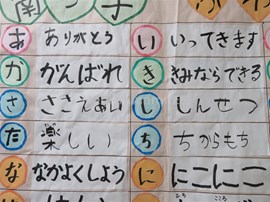 南っ子
あ ありがとう
い いってきます
か がんばれ
き きみならできる
さ ささえあい
し しんせつ
た 楽しい
ち ちからもち
な なかよくしよう
に にこにこ